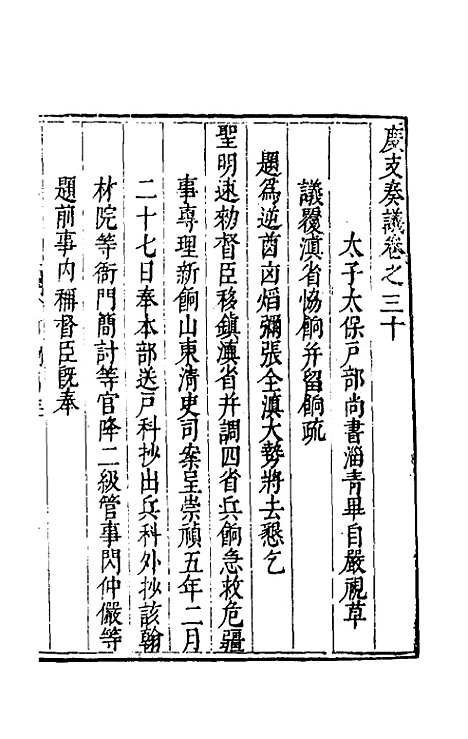 度支奏議卷之三十
太子太保戸部尚書淄青畢自嚴視草
議覆滇省恊餉并留餉疏
題爲逆酋凶熖彌張全滇大勢將去懇乞
聖明速勑督臣移鎮滇省并調四省兵餉急救危疆
事專理新餉山東清吏司案呈崇禎五年二月
二十七日奉本部送戸科抄出兵科外抄該翰
林院等衙門簡討等官降二級管事閃仲儼等
題前事內稱督臣旣奉